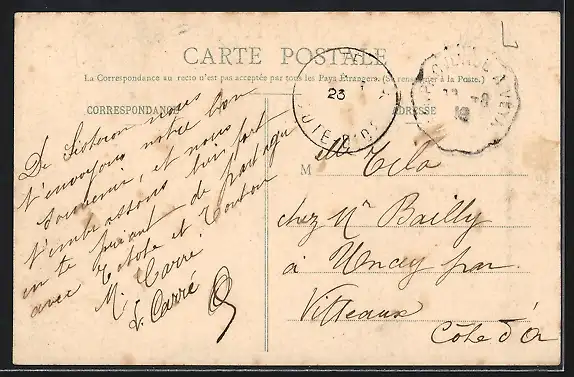 CARTE POSTALE
La Correspondance au recto n'est pas acceptée par tous les Pays Étrangers. (Se renseigner à la Poste.)
CORRESPONDANCE
ADRESSE
De nous
t'envoyons notre bon
souvenir, et nous
t'embrassons bien fort
en te priant de partager
avec Totote et Toutou
M. Carré
L. Carré
23
CÔTE-D'OR
M elle Tela
chez Mr Bailly
à Uncey par
Vitteaux
Côte d'Or